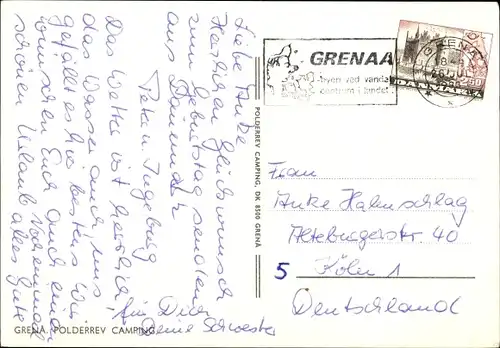 Liebe Anke
Herzlichen Glückwunsch
zum Geburtstag senden
aus Dänemark
Peter u. Ingeburg
Das Wetter ist herrlich,
das Wasser auch, uns
gefällt es hier bestens. Wir
wünschen Euch auch einen
schönen Urlaub
alles Gute
für Dich
Deine Schwester
GRENÅ, POLDERREV CAMPING
POLDERREV CAMPING, DK 8500 GRENÅ
GRENAA
byen ved vandet
centrum i landet
GRENÅ
DANMARK
Frau
Anke Hahnschlag
Alteburgerstr. 40
5 Köln 1
Deutschland